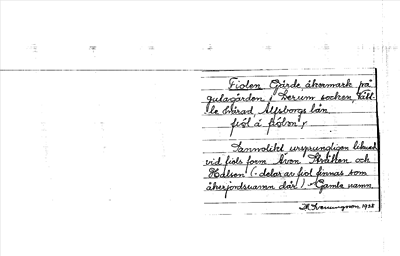 Fiolen Gärde, åkermark på
gulagården i Lerum socken Vätt-
le härad, Älfsborgs län
fiol á fiolon
Sannolikt ursprungligen liknad
vid fiols form även Skallen och
Halsen (- delar av fiol finnas som
åkerjordsnamn där). Gamla namn
1928